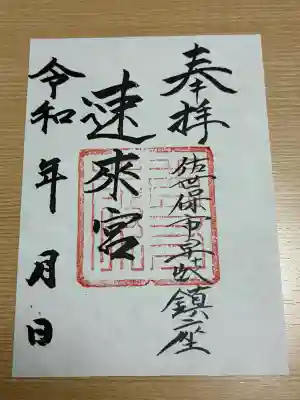 奉拝
佐世保市早岐鎮座
速来宮
令和 年 月 日